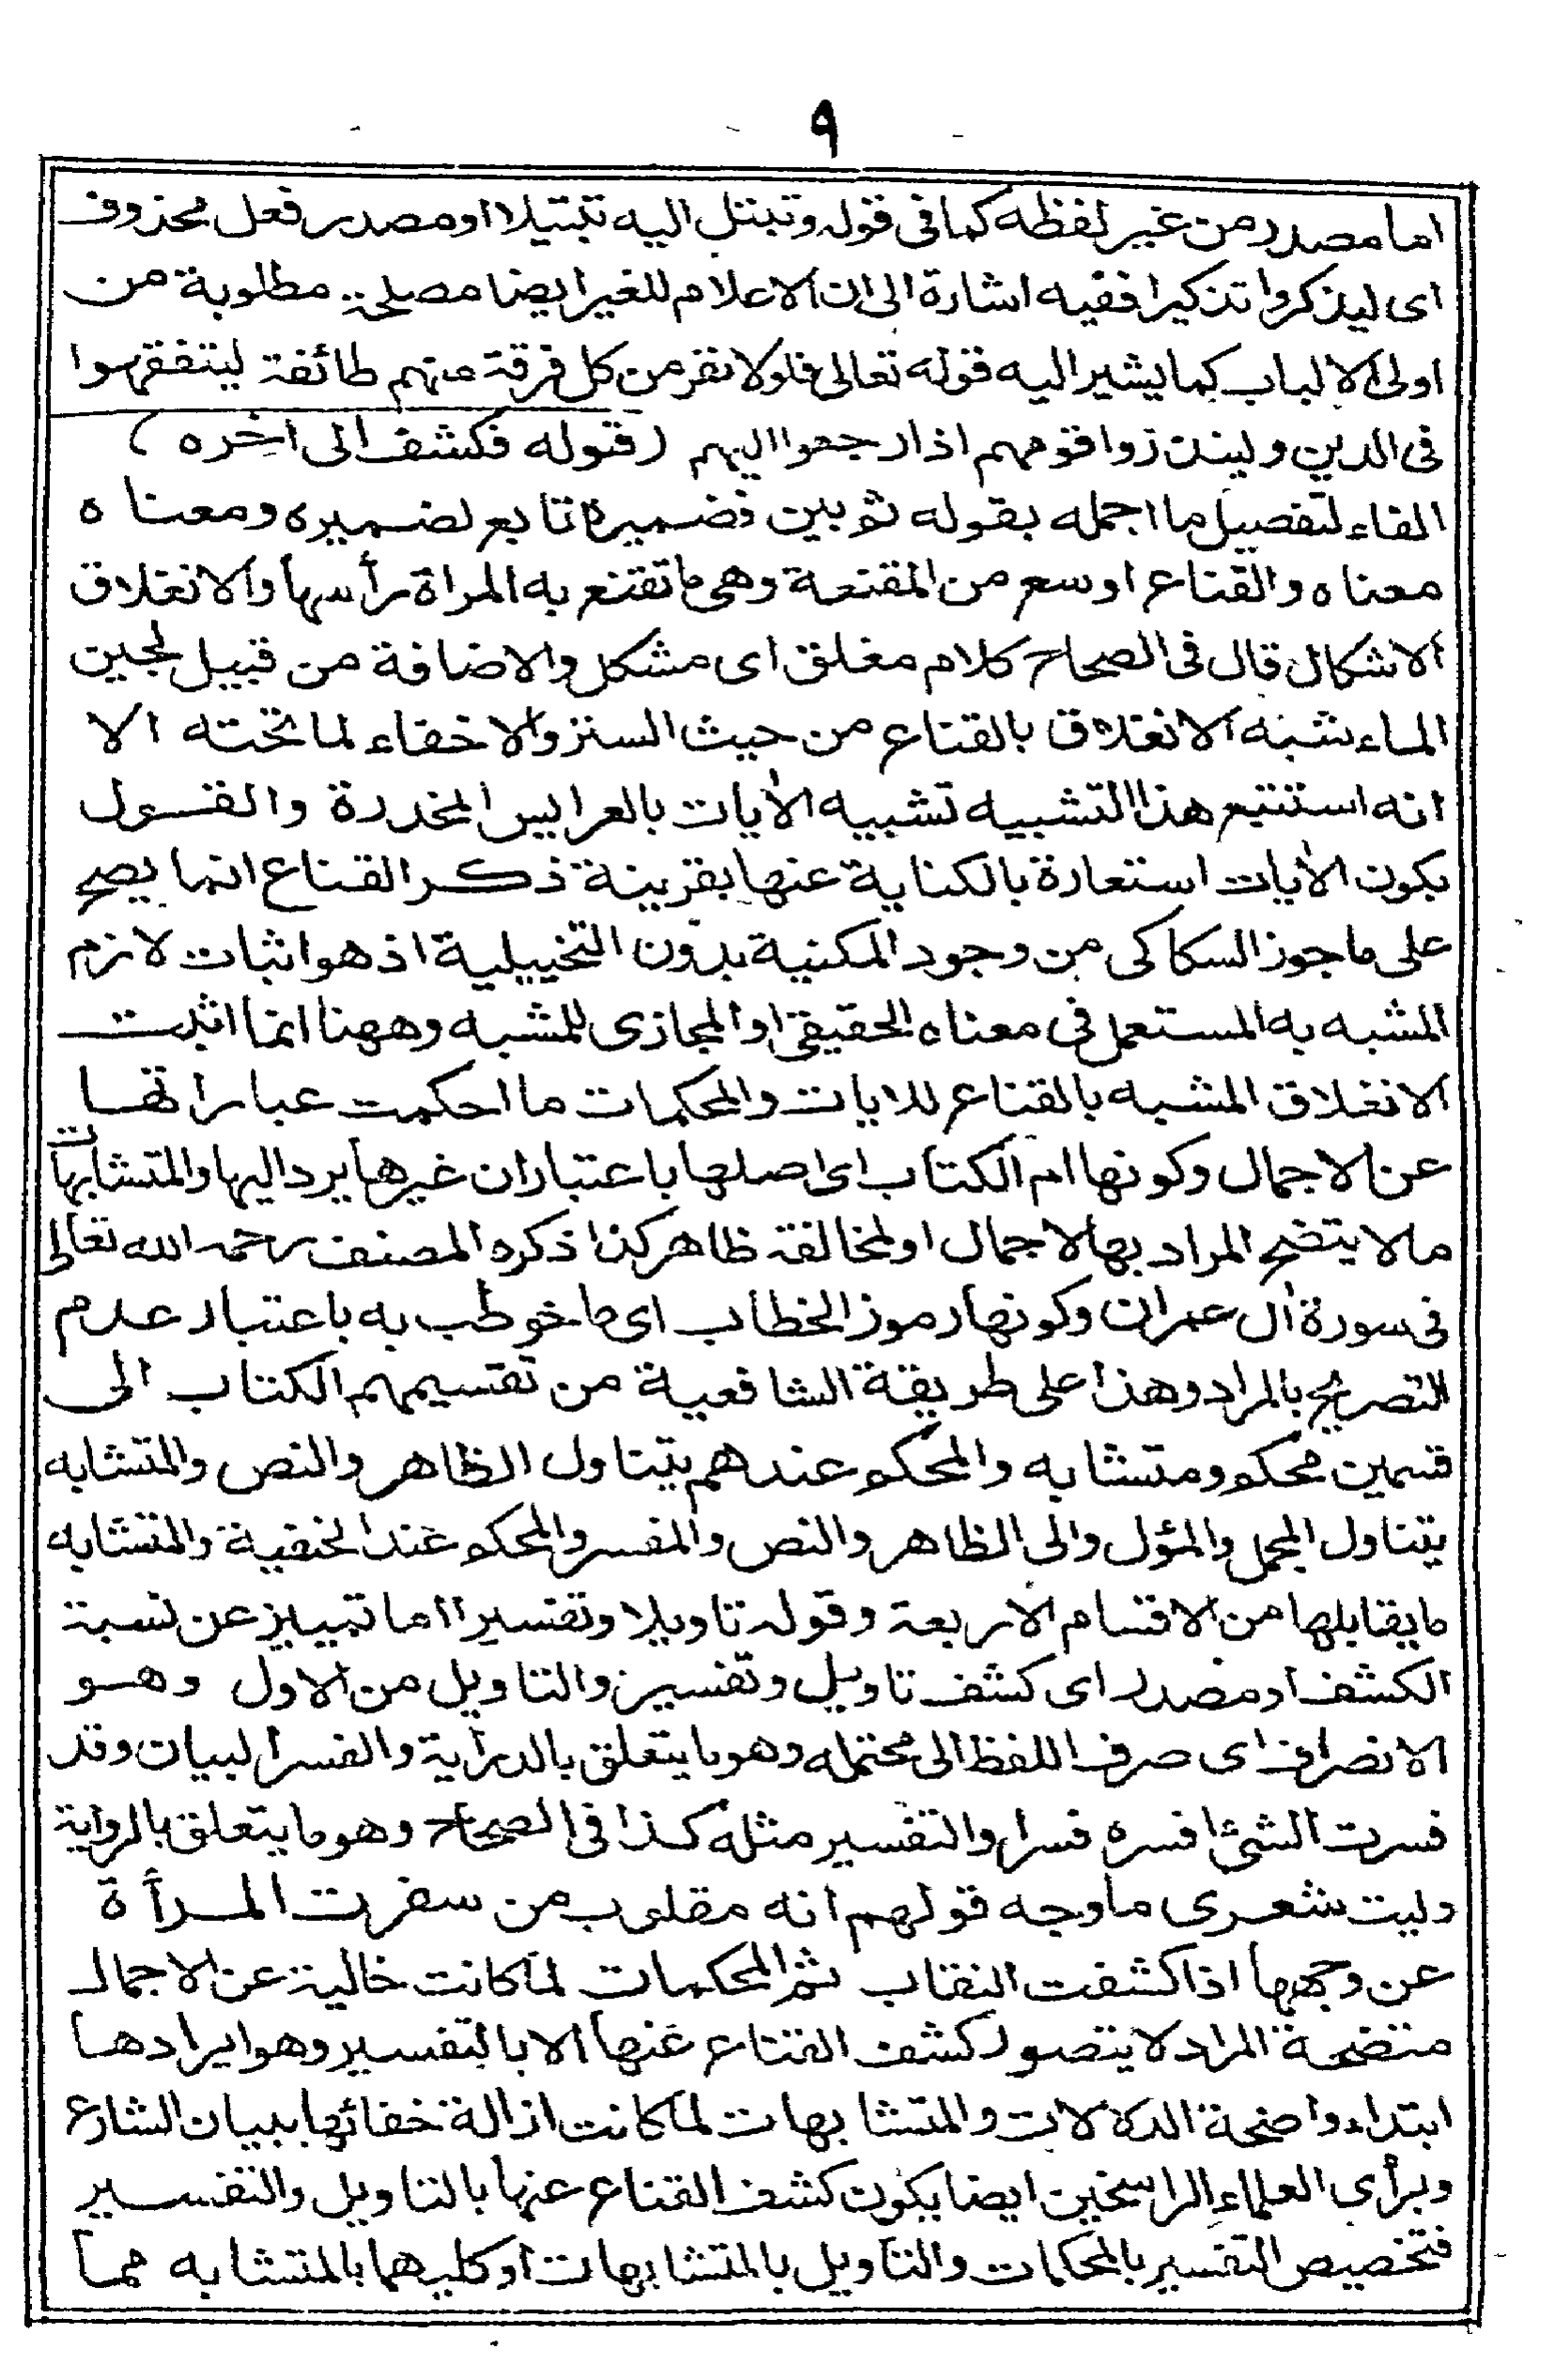 ٩
اما مصدر من غير لفظه كما فى قوله وتبتل اليه تبتيلا او مصدر فعل محذوف
اى ليذكروا تذكيرا ففيه اشارة الى ان الاعلام للغير ايضا مصلحة مطلوبة من
اولى الالباب كما يشير اليه قوله تعالى فلولا نفر من كل فرقة منهم طائفة ليتفقهوا
فى الدين ولينذروا قومهم اذا رجعوا اليهم (قوله فكشف الى اخره)
الفاء لتفصيل ما اجمله بقوله ثم بين فضميره تابع لضميره ومعناه
معناه والقناع اوسع من المقنعة وهى ما تقنع به المراة رأسها والانغلاق
الاشكال قال فى الصحاح كلام مغلق اى مشكل والاضافة من قبيل لجين
الماء شبه الانغلاق بالقناع من حيث الستر والاخفاء لما تحته الا
انه استتبع هذا التشبيه تشبيه الأيات بالعرايس المخدرة والقول
بكون الأيات استعارة بالكناية عنها بقرينة ذكر القناع انما يصح
على ما جوز السكاكى من وجود المكنية بدون التخييلية اذ هو اثبات لازم
المشبه به المستعمل فى معناه الحقيقى او المجازى للمشبه وههنا انما اثبت
الانغلاق المشبه بالقناع للايات والمحكمات ما احكمت عباراتها
عن الاجمال وكونها ام الكتاب اى اصلها باعتبار ان غيرها يرد اليها والمتشابهات
ما لا يتضح المراد بها لاجمال او لمخالفة ظاهر كذا ذكره المصنف رحمه الله تعالى
فى سورة أل عمران وكونها رموز الخطاب اى ما خوطب به باعتبار عدم
التصريح بالمراد وهذا على طريقة الشافعية من تقسيمهم الكتاب الى
قسمين محكم ومتشابه والمحكم عندهم يتناول الظاهر والنص والمتشابه
يتناول المجمل والمؤل والى الظاهر والنص والمفسر والمحكم عند الحنفية والمتشابه
ما يقابلها من الاقسام الاربعة وقوله تاويلا وتفسيرا اما تمييز عن نسبة
الكشف او مصدر اى كشف تاويل وتفسير والتاويل من الاول وهو
الانصراف اى صرف اللفظ الى محتمله وهو ما يتعلق بالدراية والفسر البيان وقد
فسرت الشئ افسره فسرا والتفسير مثله كذا فى الصحاح وهو ما يتعلق بالرواية
وليت شعرى ما وجه قولهم انه مقلوب من سفرت المرأة
عن وجهها اذا كشفت النقاب ثم المحكمات لما كانت خالية عن الاجمال
متضحة المراد لا يتصور كشف القناع عنها الا بالتفسير وهو ايرادها
ابتداء واضحة الدلالات والمتشابهات لما كانت ازالة خفائها ببيان الشارع
وبرأى العلماء الراسخين ايضا يكون كشف القناع عنها بالتاويل والتفسير
فتخصيص التفسير بالمحكمات والتاويل بالمتشابهات او كليهما بالمتشابه مما